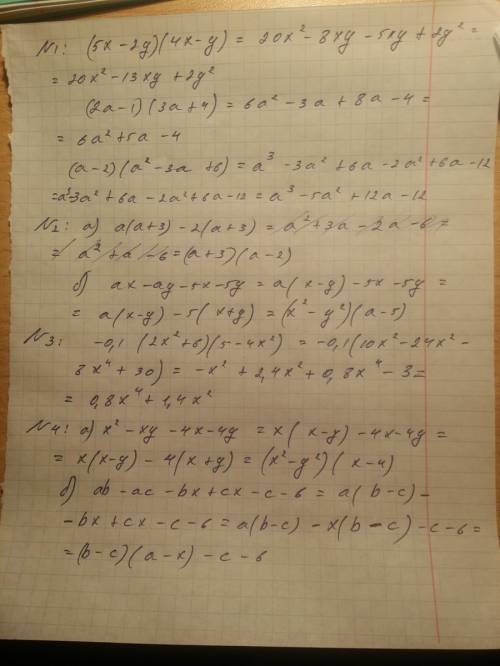 N1: (5x - 2y)(4x - y) = 20x² - 8xy - 5xy + 2y² =
= 20x² - 13xy + 2y²
(2a - 1)(3a + 4) = 6a² - 3a + 8a - 4 =
= 6a² + 5a - 4
(a - 2)(a² - 3a + 6) = a³ - 3a² + 6a - 2a² + 6a - 12
= a³ - 3a² + 6a - 2a² + 6a - 12 = a³ - 5a² + 12a - 12
N2: а) a(a + 3) - 2(a + 3) = a² + 3a - 2a - 6 =
= a² + a - 6 = (a + 3)(a - 2)
б) ax - ay - 5x - 5y = a(x - y) - 5x - 5y =
= a(x - y) - 5(x + y) = (x² - y²)(a - 5)
N3: -0,1 (2x² + 6)(5 - 4x²) = -0,1(10x² - 24x² -
8x⁴ + 30) = -x² + 2,4x² + 0,8x⁴ - 3 =
= 0,8x⁴ + 1,4x²
N4: а) x² - xy - 4x - 4y = x(x - y) - 4x - 4y =
= x(x - y) - 4(x + y) = (x² - y²)(x - 4)
б) ab - ac - bx + cx - c - b = a(b - c) -
- bx + cx - c - b = a(b - c) - x(b - c) - c - b =
= (b - c)(a - x) - c - b